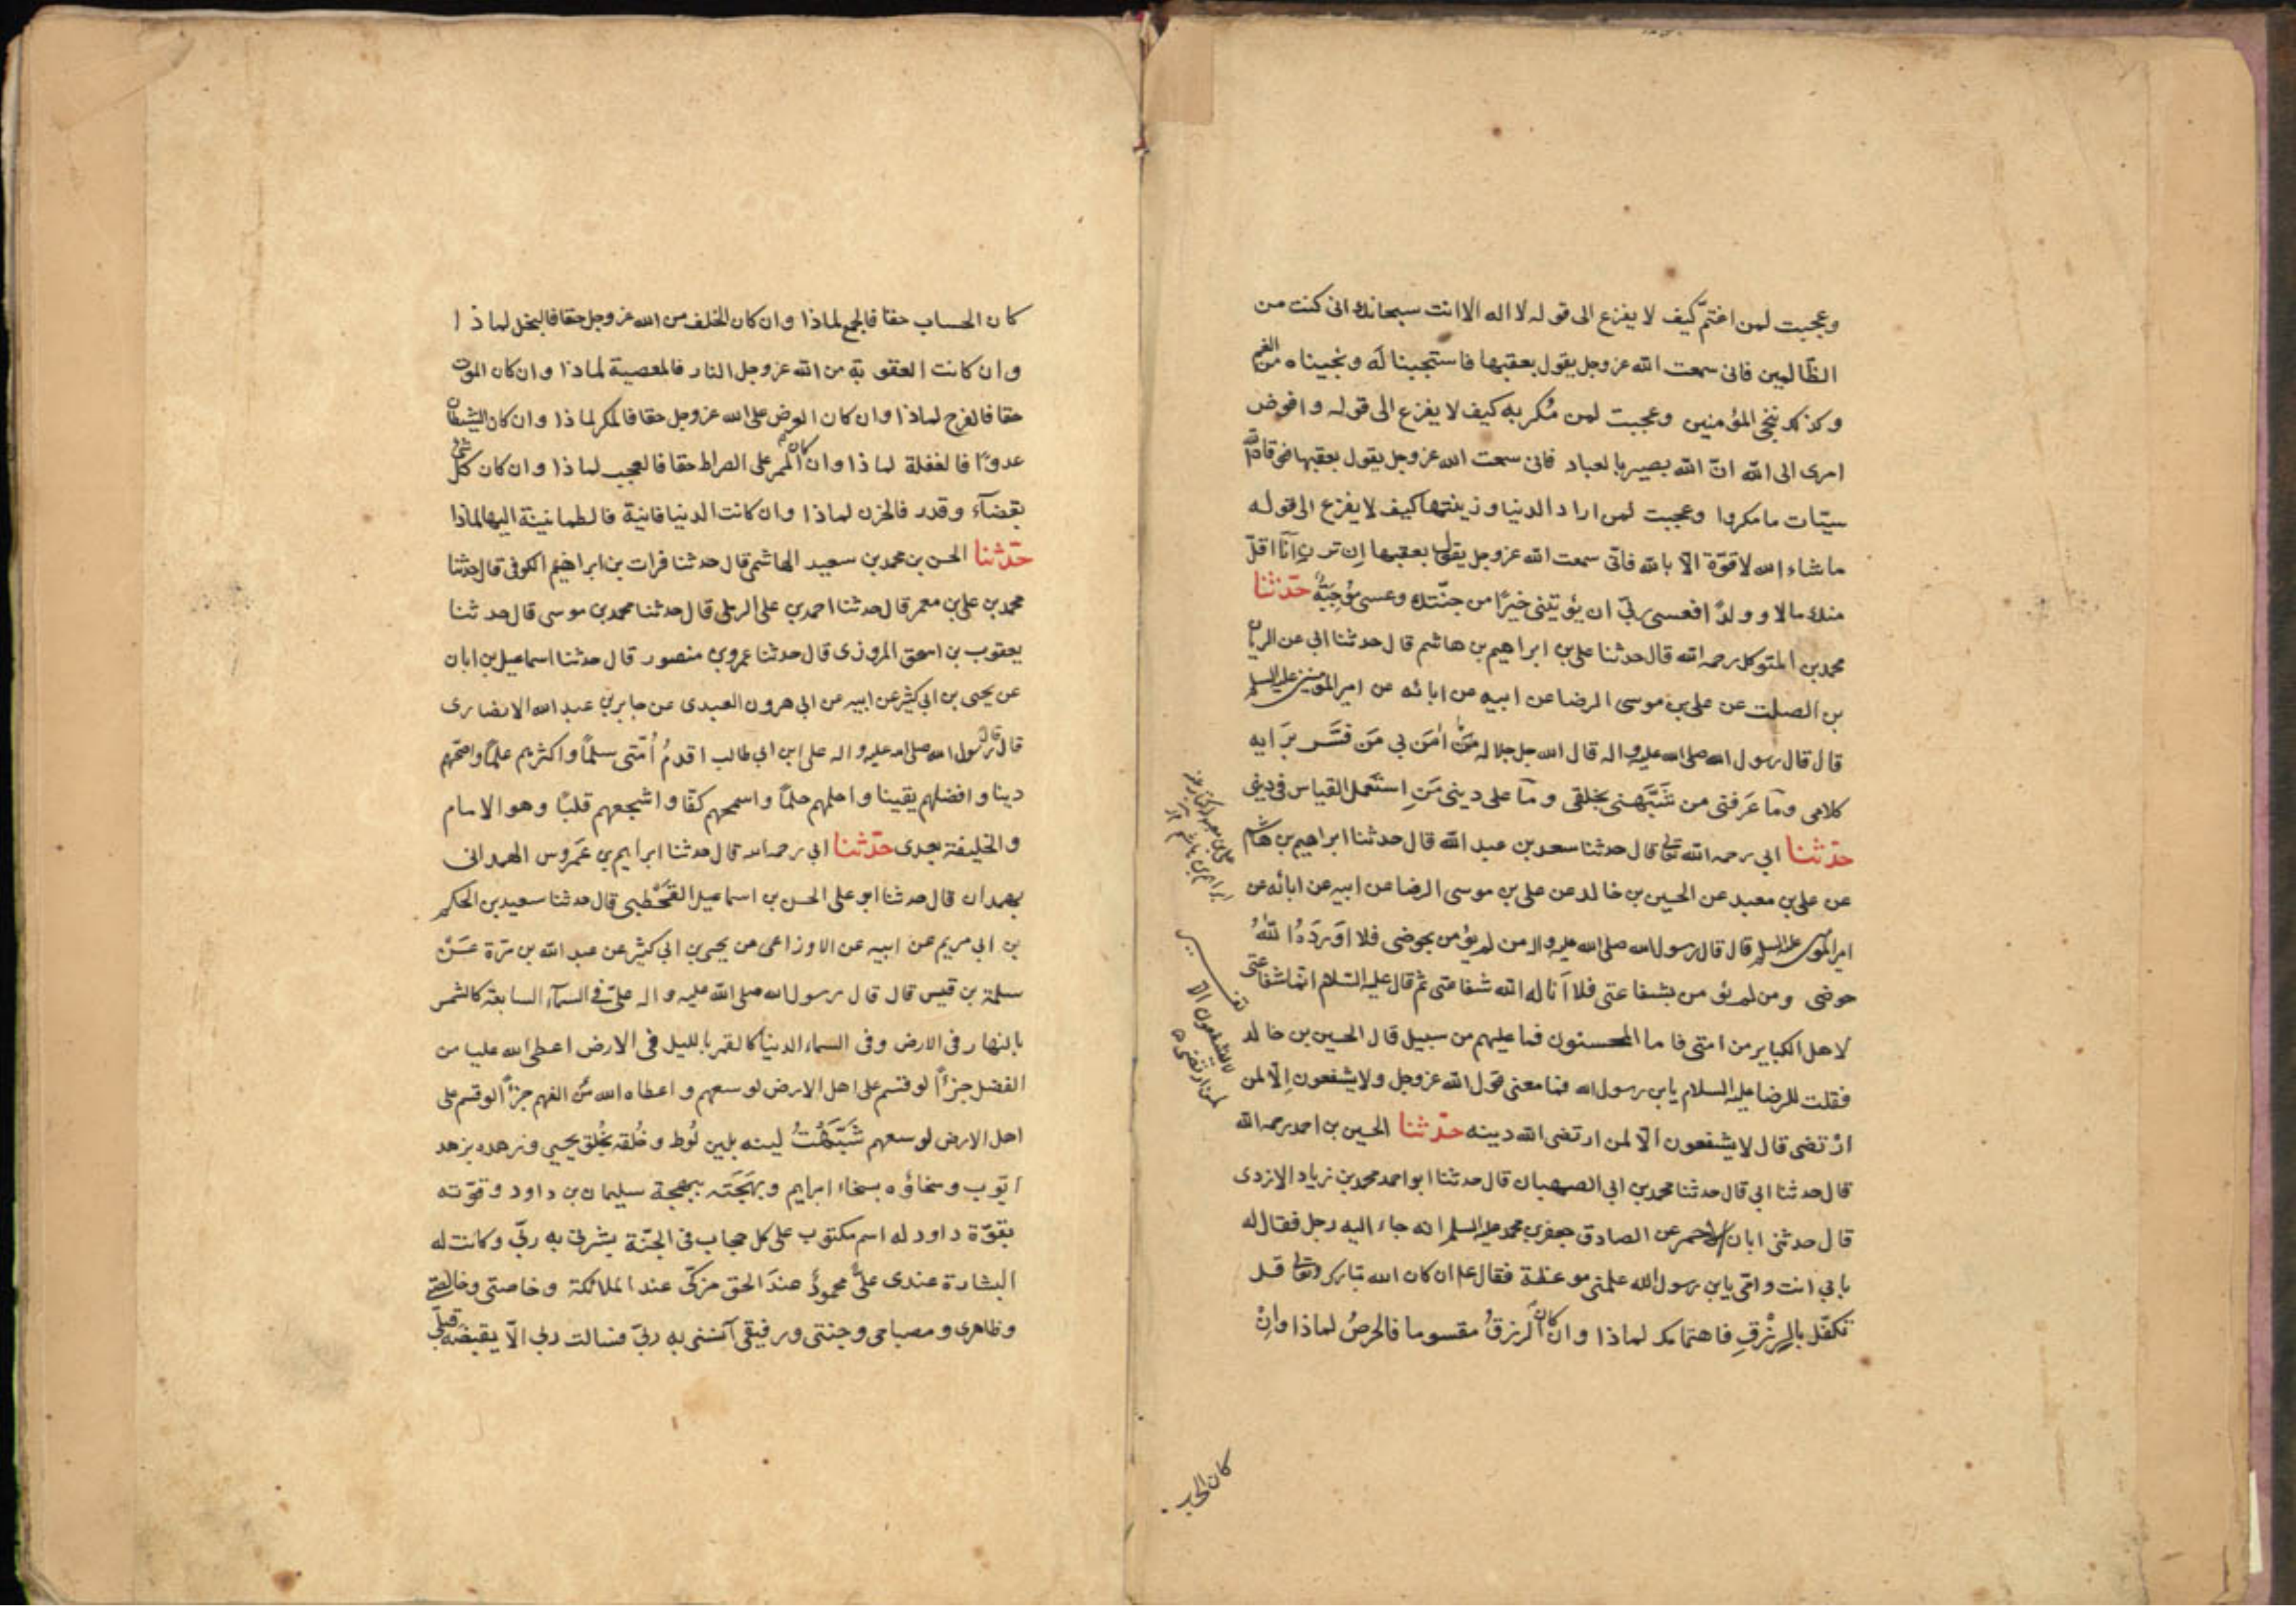 وعجبت لمن اغتمّ كيف لا يفزع الى قوله لا اله الا انت سبحانك انى كنت من
الظالمين فانى سمعت الله عز وجل يقول بعقبها فاستجبنا له ونجيناه من الغم
وكذلك ننجى المؤمنين وعجبت لمن مُكر به كيف لا يفزع الى قوله وافوض
امرى الى الله انّ الله بصير بالعباد فانى سمعت الله عز وجل يقول بعقبها فوقاه الله
سيّئات ما مكروا وعجبت لمن اراد الدنيا وزينتها كيف لا يفزع الى قوله
ما شاء الله لا قوّة الّا بالله فانّى سمعت الله عز وجل يقول بعقبها اِن ترنِ اَنَا اقلّ
منك مالا وولدًا فعسى ربّى ان يؤتينى خيرًا من جنّتك وعسى مُوجَبَةٌ حدّثنا
محمد بن المتوكل رحمه الله قال حدثنا على بن ابراهيم بن هاشم قال حدثنا ابى عن الريان
بن الصلت عن على بن موسى الرضا عن ابيه عن ابائه عن امير المؤمنين عليه السلم
قال قال رسول الله صلى الله عليه واله قال الله جل جلاله مَا اٰمَنَ بى مَن فَسَّر برَايه
كلامى ومَا عَرفنى من شَبَّهَنى بخلقى ومَا على دينى مَنِ استعمل القياس فى دينى
حدّثنا ابى رحمه الله تعالى قال حدثنا سعد بن عبد الله قال حدثنا ابراهيم بن هاشم
عن على بن معبد عن الحسين بن خالد عن على بن موسى الرضا عن ابيه عن ابائه عن
امير المؤمنين عليه السلم قال قال رسول الله صلى الله عليه واله من لم يؤمن بحوضى فلا اَوْرَدَهُ اللهُ
حوضى ومن لم يؤمن بشفاعتى فلا اَنَاله الله شفاعتى ثم قال عليه السّلام انّما شفاعتى
لاهل الكباير من امّتى فاما المحسنون فما عليهم من سبيل قال الحسين بن خالد
فقلت للرضا عليه السلام يابن رسول الله فما معنى قول الله عز وجل ولا يشفعون اِلّا لمن
ارْتضى قال لا يشفعون الّا لمن ارتضى الله دينه حدّثنا الحسين بن احمد رحمه الله
قال حدثنا ابى قال حدثنا محمد بن ابى الصهبان قال حدثنا ابو احمد محمد بن زياد الازدى
قال حدثنى ابان الاحمر عن الصادق جعفر بن محمد عليه السلم انه جاء اليه رجل فقال له
بابى انت وامّى يابن رسول الله علمنى موعظة فقال عم ان كان الله تبارك وتعالى قد
تكفّل بالرِّزْقِ فاهتمامك لماذا وان كان الرزقُ مقسوما فالحرصُ لماذا واِنْ
كان الحسا
كان الحساب حقا فالجمع لماذا وان كان الخلف من الله عز وجل حقا فالبخل لماذا
وان كانت العقوبة من الله عز وجل النار فالمعصية لماذا وان كان الموت
حقا فالفرح لماذا وان كان العرض على الله عز وجل حقا فالمكر لماذا وان كان الشيطان
عدوًّا فالغفلة لماذا وان كان الممر على الصراط حقا فالعجب لماذا وان كان كل شئ
بقضآء وقدر فالحزن لماذا وان كانت الدنيا فانية فالطمانينة اليها لماذا
حدّثنا الحسن بن محمد بن سعيد الهاشمى قال حدثنا فرات بن ابراهيم الكوفى قال حدثنا
محمد بن على بن معمر قال حدثنا احمد بن على الرملى قال حدثنا محمد بن موسى قال حدثنا
يعقوب بن اسحق المروزى قال حدثنا عمرو بن منصور قال حدثنا اسماعيل بن ابان
عن يحيى بن ابى كثير عن ابيه عن ابى هرون العبدى عن جابر بن عبد الله الانصارى
قال قال رسول الله صلى الله عليه واله على ابن ابى طالب اقدمُ اُمّتى سلمًا واكثرهم علمًا واصحّهم
دينا وافضلهم يقينا واحلمهم حلمًا واسمحهم كفّا واشجعهم قلبًا وهو الامام
والخليفة بعدى حدّثنا ابى رحمه الله قال حدثنا ابراهيم بن عَمروس الهمدانى
بهمدان قال حدثنا ابو على الحسن بن اسماعيل القَحْطبى قال حدثنا سعيد بن الحكم
بن ابى مريم عن ابيه عن الاوزاعى عن يحيى بن ابى كثير عن عبد الله بن مرّة عَنْ
سلمة بن قيس قال قال رسول الله صلى الله عليه واله علىّ فى السمآء السابعة كالشمس
بالنهار فى الارض وفى السماء الدنيا كالقمر بالليل فى الارض اعطى الله عليا من
الفضل جزءًا لو قسم على اهل الارض لوسعهم واعطاه الله من الفهم جزءًا لو قسم على
اهل الارض لوسعهم شَبَّهْتُ لينه بلين لُوط وخُلقه بخُلق يحيى وزهده بزهد
ايّوب وسخاؤه بسخاء ابرهيم وبهَجَته ببهجة سليمان بن داود وقوّته
بقوّة داود له اسم مكتوب على كل حجاب فى الجنّة بشرنى به ربّى وكانت له
البشارة عندى علىٌّ محمودٌ عندَ الحق مزكّى عند الملائكة وخاصتى وخالصتى
وظاهرى ومصباحى وجنتى ورفيقى آنسنى به ربىّ فسالت ربى الّا يقبضه قبلى